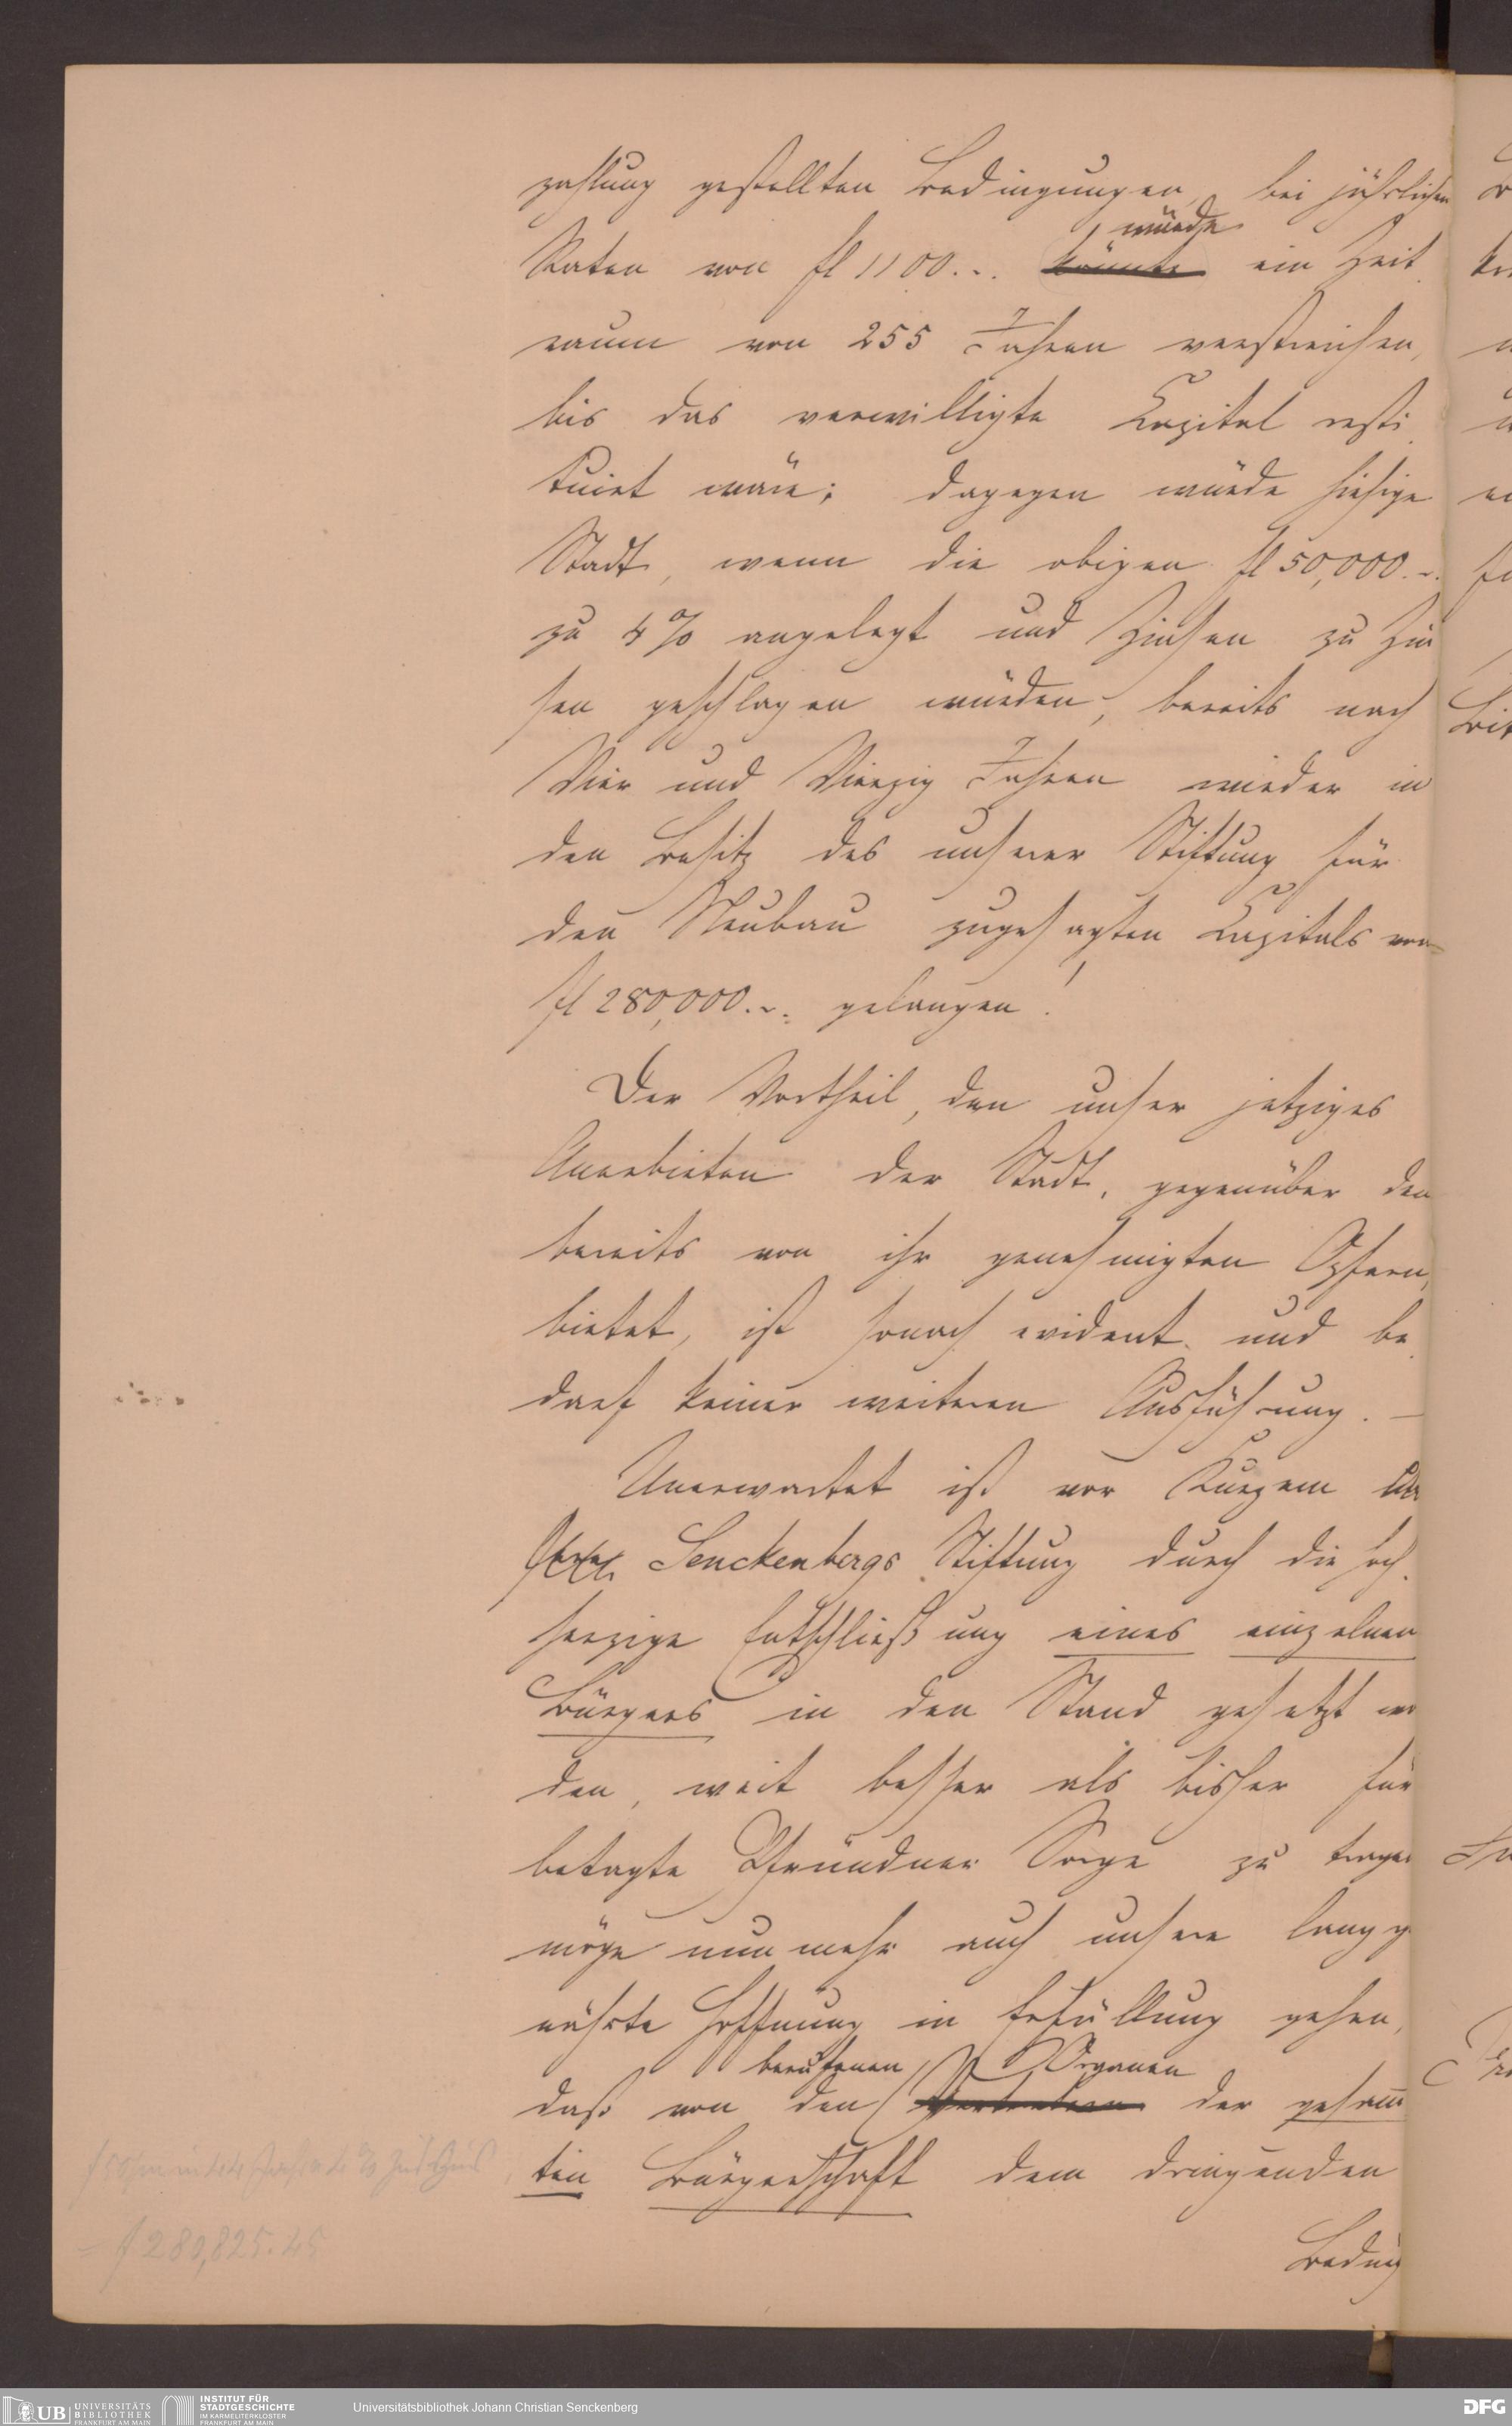 zahlung gestellten Bedingungen, bei jährlichen
würde
Raten von fl 1100.-. könnte ein Zeit
raum von 255 Jahren verstreichen,
bis das verwilligte Kapital resti
tuirt wäre; dagegen würde hiesige
Stadt, wenn die obigen fl 50,000.-.
zu 4% angelegt und Zinsen zu Zin
sen geschlagen würden, bereits nach
Vier und Vierzig Jahren wieder in
den Besitz des unserer Stiftung für
den Neubau zugesagten Kapitals von
fl 280,000.-. gelangen!
Der Vortheil, den unser jetziges
Anerbieten der Stadt, gegenüber den
bereits von ihr genehmigten Opfern,
bietet, ist sonach evident und be
darf keiner weiteren Ausführung. —
Unerwartet ist vor Kurzem die
Senckenbergs Stiftung durch die hoch
herzige Entschließung eines einzelnen
Bürgers in den Stand gesetzt wor
den, weit besser als bisher für
betagte Pfründner Sorge zu tragen
möge nunmehr auch unsere lang ge
nährte Hoffnung in Erfüllung gehen,
berufenen Organen
daß von den Vertretern der gesamm
ten Bürgerschaft dem dringenden
Bedürf
= f 280,825.45
UB UNIVERSITÄTS
BIBLIOTHEK
FRANKFURT AM MAIN
INSTITUT FÜR
STADTGESCHICHTE
IM KARMELITERKLOSTER
FRANKFURT AM MAIN
Universitätsbibliothek Johann Christian Senckenberg
DFG